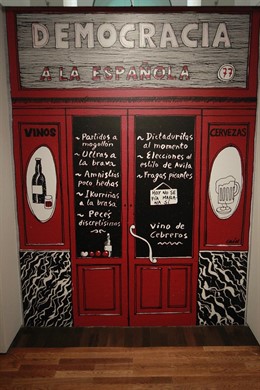 DEMOCRACIA
A LA ESPAÑOLA
77
VINOS
~ Partidos a
mogollón
~ Ultras a
la brava
~ Amnistías
poco hechas
~ Ikurriñas
a la brasa
~ Peces
discretísimos
~ Dictaduritas
al momento
~ Elecciones al
estilo de Avila
~ Tragas picantes
HOY NO SE
FÍA MAÑA
NA SÍ
vino de
Cebreros
CERVEZAS